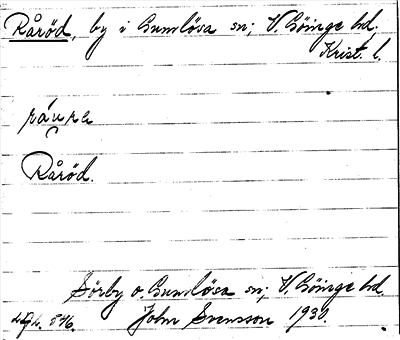 Råröd, by i Gumlösa sn; V. Göinge hd.
Krist. l.
Råröd.
Sörby o. Gumlösa sn; V. Göinge hd.
John Svensson 1930